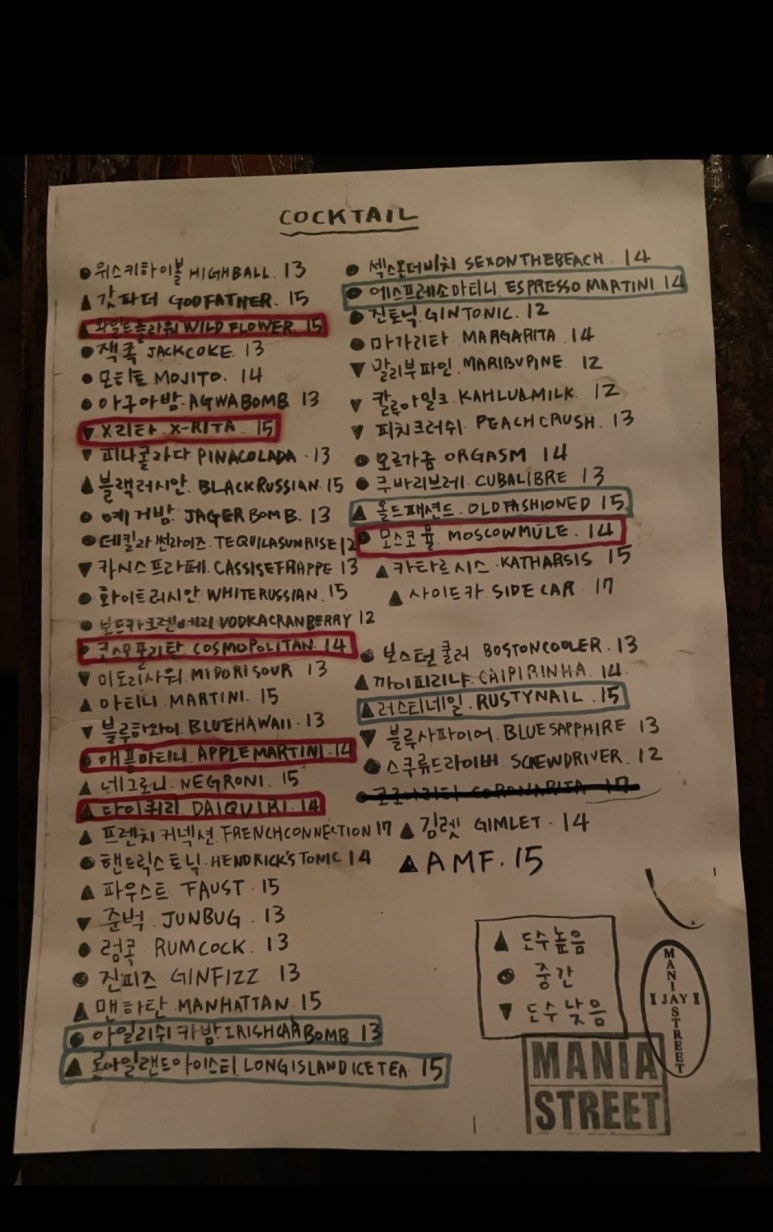 COCKTAIL
● 위스키하이볼 HIGHBALL. 13
▲ 갓파더 GODFATHER. 15
▲ 와일드플라워 WILD FLOWER. 15
● 잭콕 JACKCOKE. 13
● 모히또 MOJITO. 14
● 아구아밤. AGWABOMB 13
▼ X리타. X-RITA. 15
▼ 피나콜라다 PINACOLADA. 13
▲ 블랙러시안. BLACKRUSSIAN. 15
● 예거밤. JAGERBOMB. 13
● 데킬라썬라이즈. TEQUILASUNRISE 12
▼ 카시스프라페. CASSISEFRAPPE 13
● 화이트러시안 WHITERUSSIAN. 15
● 보드카크렌베리 VODKACRANBERRY 12
● 코스모폴리탄. COSMOPOLITAN. 14
▼ 미도리사워 MIDORISOUR 13
▲ 마티니. MARTINI. 15
▼ 블루하와이. BLUEHAWAII. 13
● 애플마티니. APPLEMARTINI. 14
▲ 네그로니. NEGRONI. 15
▲ 다이퀴리 DAIQUIRI. 14
▲ 프렌치커넥션. FRENCHCONNECTION 17
● 핸드릭스토닉. HENDRICK'S TONIC 14
▲ 파우스트 FAUST. 15
▼ 준벅. JUNBUG. 13
● 럼콕 RUMCOCK. 13
● 진피즈 GINFIZZ 13
▲ 맨하탄. MANHATTAN. 15
● 아일리쉬카밤. IRISHCARBOMB 13
▲ 롱아일랜드아이스티. LONGISLANDICETEA. 15
● 섹스온더비치 SEXONTHEBEACH. 14
● 에스프레소마티니. ESPRESSO MARTINI 14
● 진토닉 GINTONIC. 12
● 마가리타. MARGARITA. 14
▼ 말리부파인. MARIBUPINE. 12
▼ 칼루아밀크. KAHLUAMILK. 12
▼ 피치크러쉬. PEACHCRUSH. 13
● 오르가즘 ORGASM 14
● 쿠바리브레. CUBALIBRE 13
▲ 올드패션드. OLDFASHIONED 15
● 모스코뮬. MOSCOWMULE. 14
▲ 카타르시스. KATHARSIS 15
▲ 사이드카. SIDECAR. 17
● 보스턴쿨러 BOSTONCOOLER. 13
▲ 까이피리냐. CAIPIRINHA. 14
▲ 러스티네일. RUSTYNAIL. 15
▼ 블루사파이어. BLUESAPPHIRE 13
● 스쿠류드라이버. SCREWDRIVER. 12
● 코로나리타 CORONARITA 17
▲ 김렛 GIMLET. 14
▲ AMF. 15
▲ 도수높음
● 중간
▼ 도수낮음
MANIA
STREET
MANIA STREET
JAY